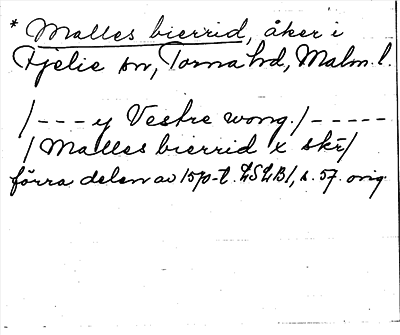 * Malles bierrid, åker i
Fjelie sn, Torna hd, Malm. l.
/ - - - y Vestre wong. / - - - - -
/ Malles bierrid x skr /
förra delen av 1570-t. LSLB1, s. 57. orig